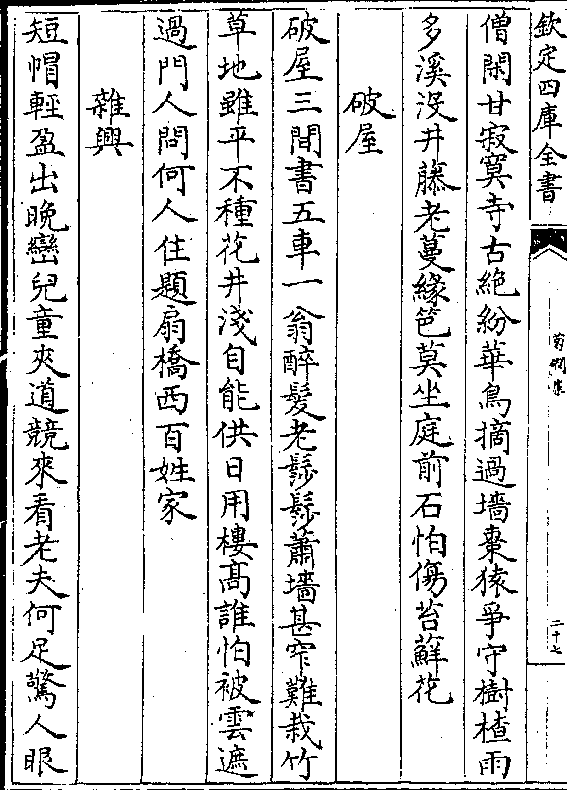 欽定四庫全書
菊磵集
二十七
僧閑甘寂寞寺古絶紛華鳥摘過墻棗猿爭守樹楂雨
多溪没井藤老蔓緣笆莫坐庭前石怕傷苔蘚花
破屋
破屋三間書五車一翁醉髮老鬖鬖蕭墻甚窄難栽竹
草地雖平不種花井淺自能供日用樓髙誰怕被雲遮
過門人問何人住題扇橋西百姓家
雜興
短帽輕盈出晚巒兒童夾道競來看老夫何足驚人眼